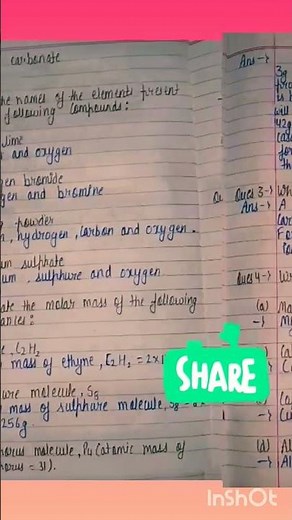 carbonate
the names of the elements present
following compounds:
lime
and oxygen
gen bromide
gen and bromine
powder
, hydrogen, carbon and oxygen.
um sulphate
um, sulphure and oxygen
ate the molar mass of the following
ances:
e, C2H2
mass of ethyne, C2H2 = 2x1
ure molecule, S8
mass of sulphure molecule, S8 =
256g.
horus molecule, P4 (atomic mass of
horus = 31).
Ans→
3g
is
will
42g
for
Ques 3→ Wh
Ans→ A
Ques 4→ Wr
(a) Ma
(d) Al
→ Al
SHARE
InShOt